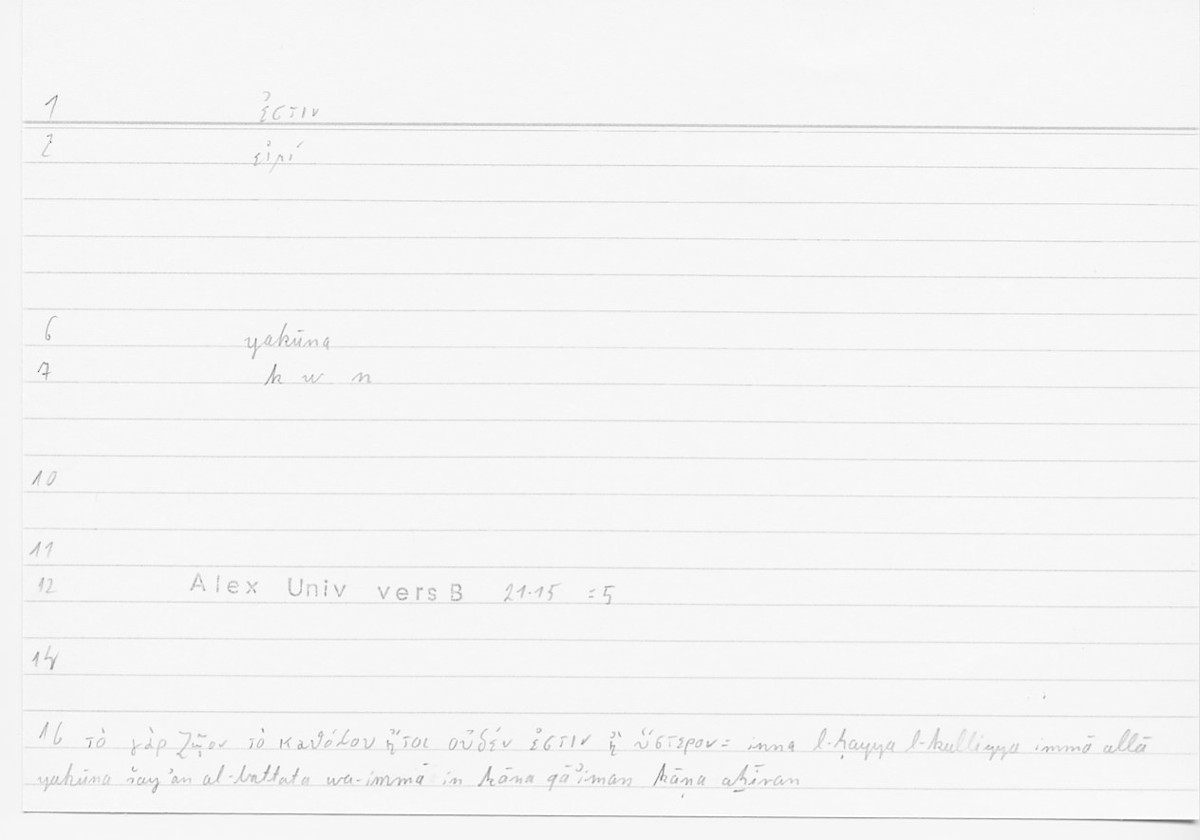 1 ἐστιν
2 εἰμί
6 yakūna
7 k w n
10
11
12 Alex Univ vers B 21.15 =5
14
16 τὸ γὰρ ζῷον τὸ καθόλου ἤτοι οὐδέν ἐστιν ἢ ὕστερον = inna l-ḥayya l-kulliyya immā allā
yakūna šayʾan al-battata wa-immā in kāna qāʾiman kāna aḫīran